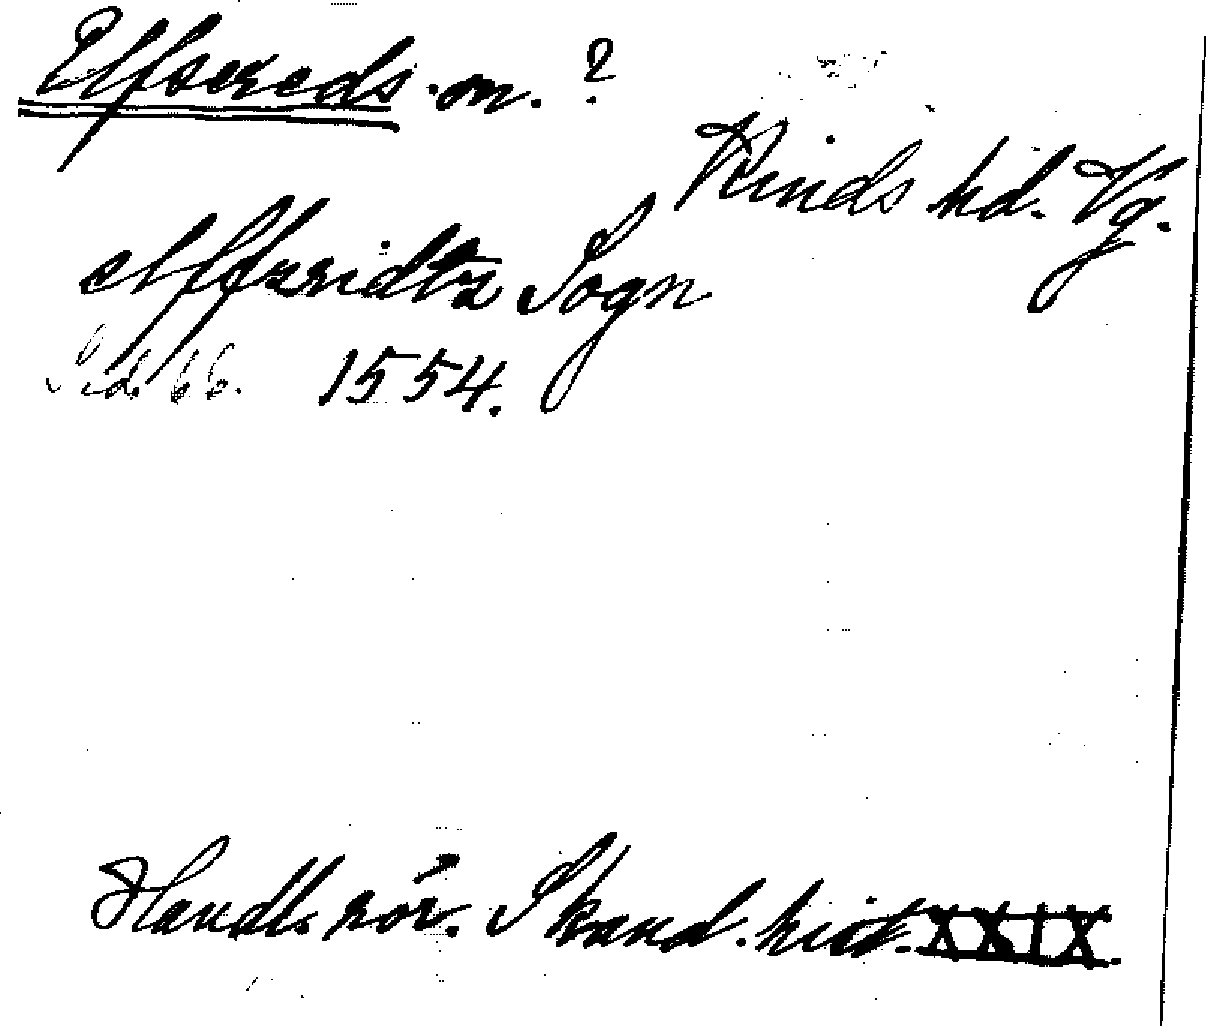 Elfsereds m. ?
Kinds hd. Vg.
Alffzridtz Sogn
Sid. 66. 1554.
Handl. rör. Skand. hist. XXIX.